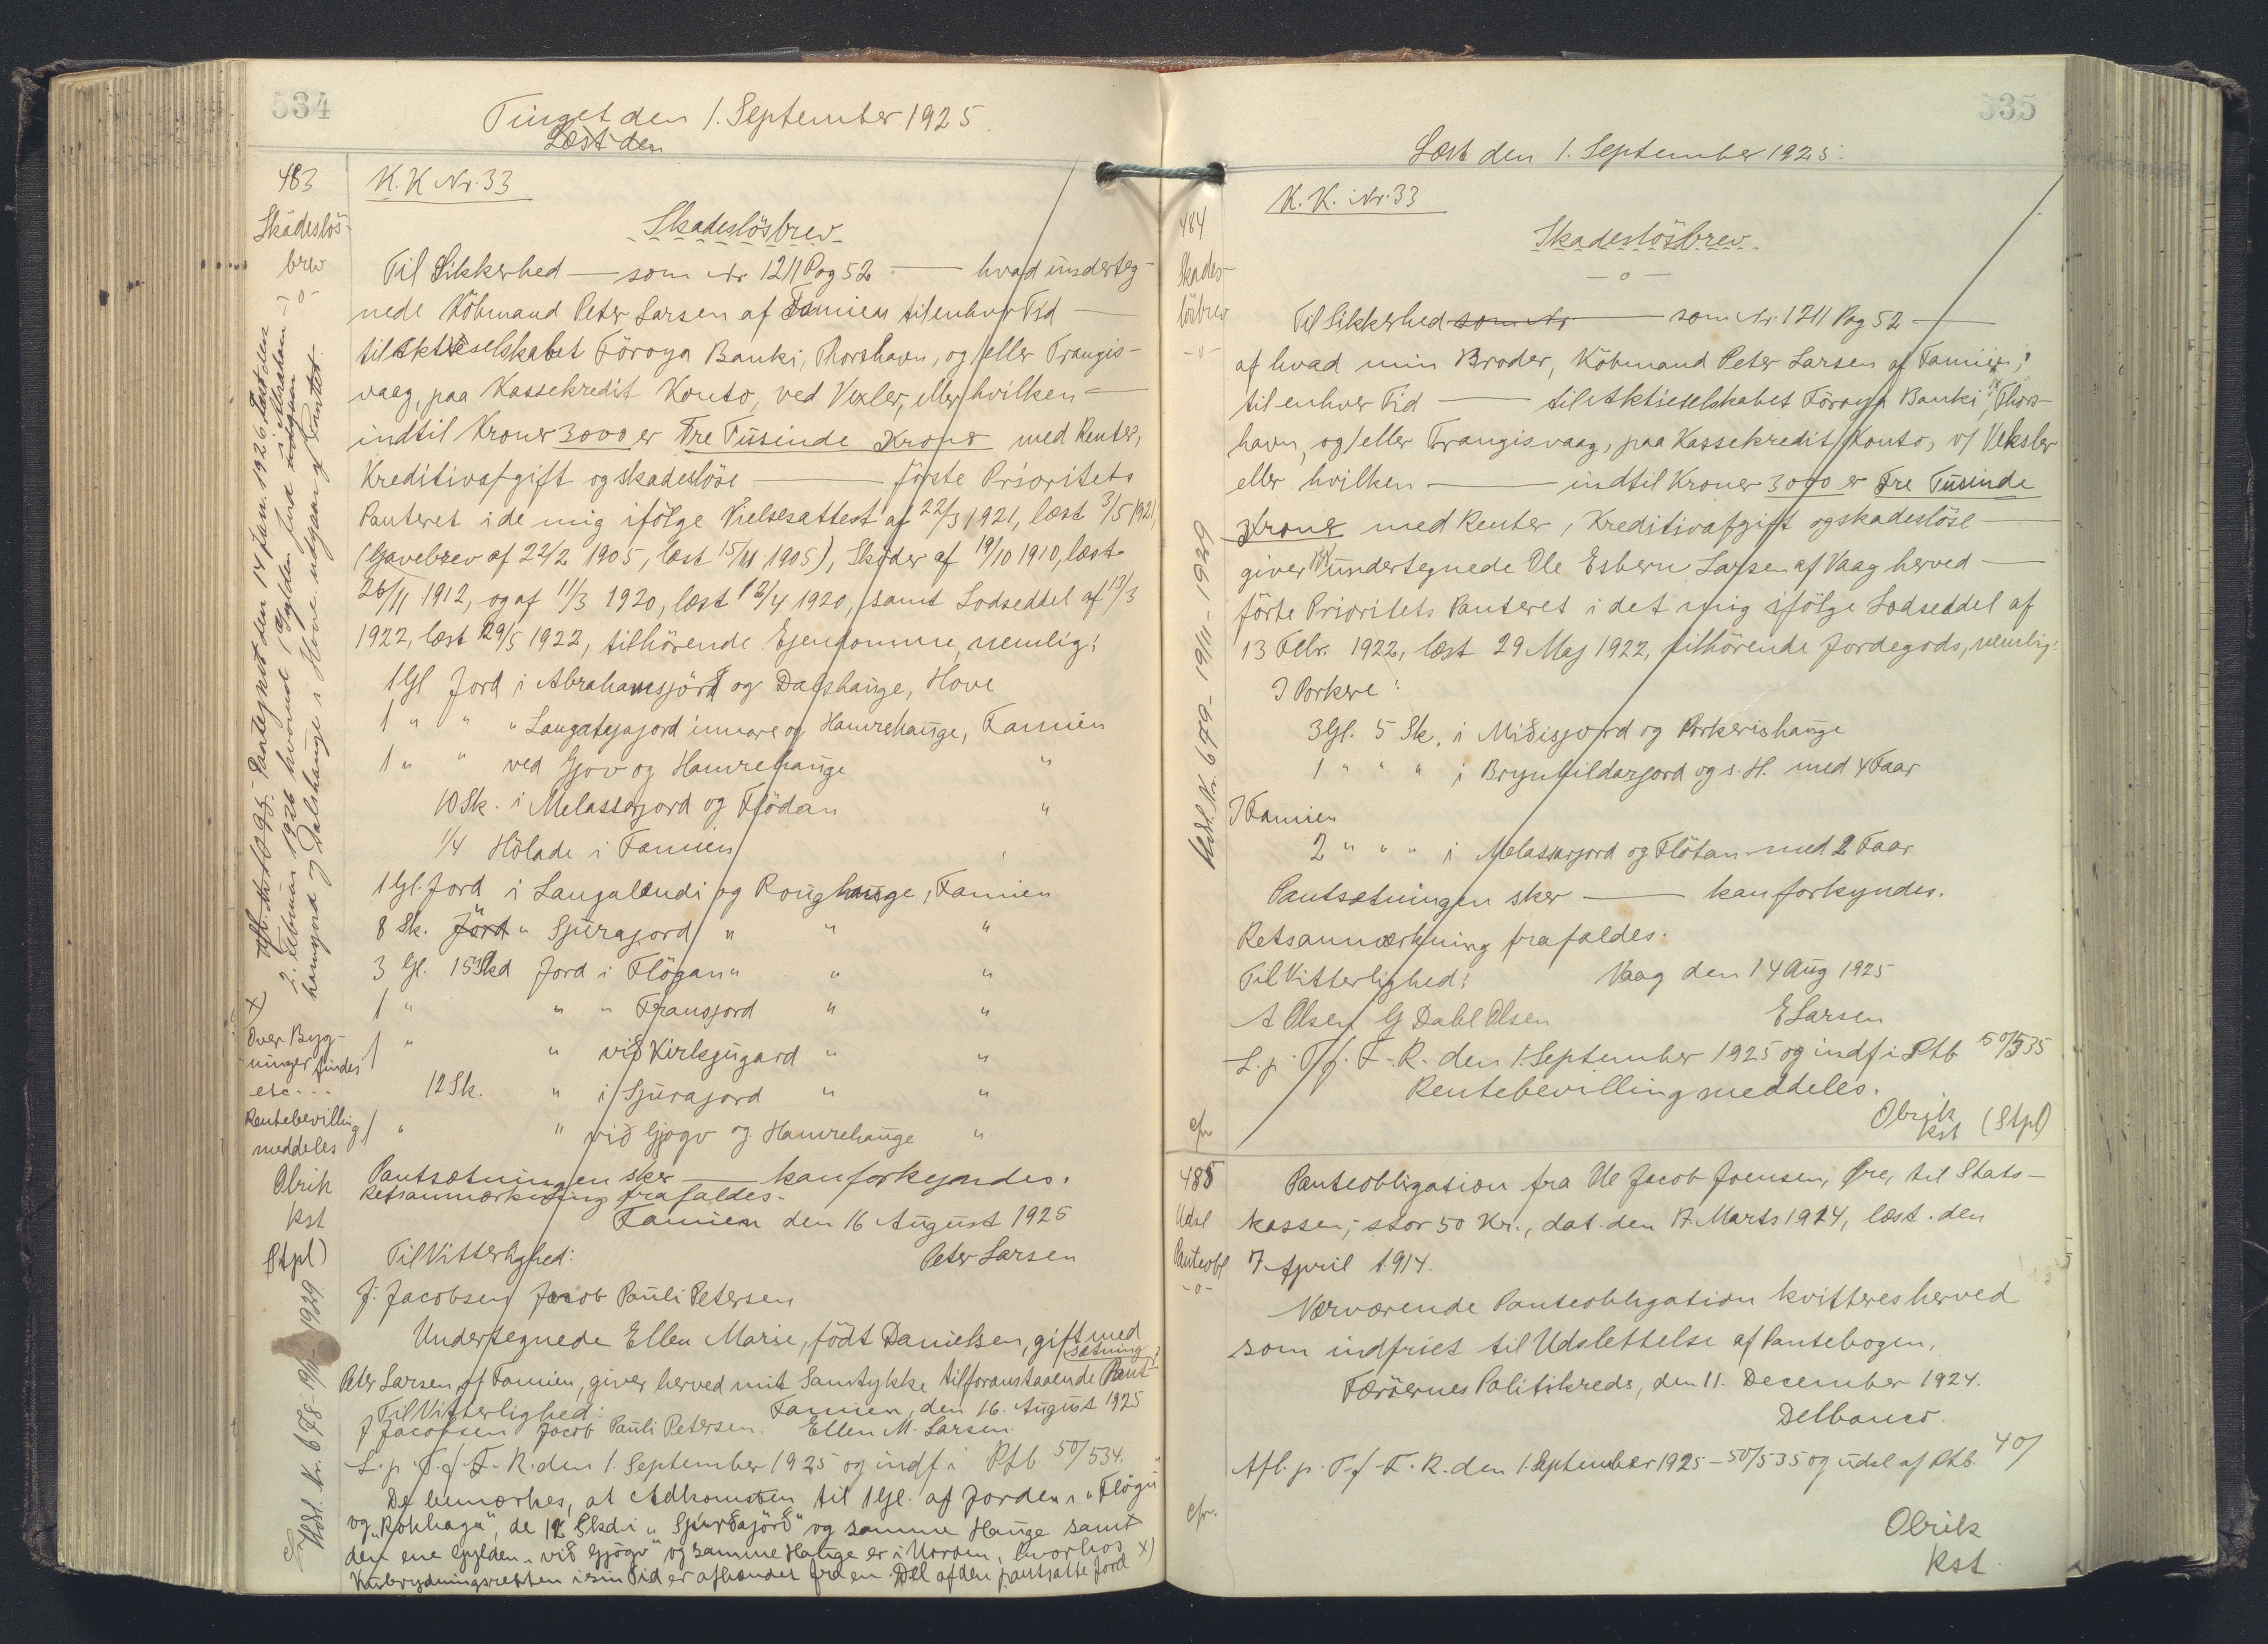 534
Tinget den 1. September 1925.
Læst den
483
Skadeslös-
brev
-o-
K.K Nr. 33
Skadeslösbrev
Til Sikkerhed — som Nr 1211 Pag 52 — hvad underteg-
nede Köbmand Peter Larsen af Famien til enhver Tid —
til Aktieselskabet Föroya Banki, Thorshavn, og/eller Trangis-
vaag, paa Kassekredit Konto, ved Vexler, eller hvilken —
indtil Kroner 3000 er Tre Tusinde Kroner med Renter,
Kreditivafgift og skadeslöse — förste Prioritets
Panteret i de mig ifölge Vielsesattest af 22/3 1921, læst 3/5 1921,
(Gavebrev af 22/2 1905, læst 15/11 1905), Skøder af 19/10 1910, læst
26/11 1912, og af 11/3 1920, læst 12/4 1920, samt Lodseddel af 13/3
1922, læst 29/5 1922, tilhörende Ejendomme, nemlig:
1 Gl Jord i Abrahamsjörd og Dalshauge, Hove
1 " " " Laugatejajord innare og Hamrehauge, Famien
1 " " ved Gjov og Hamrehauge "
10 Sk. i Melassajord og Flödan "
1/4 Hölade i Famien
1 Gl. Jord i Laugalandi og Roughauge, Famien
8 Sk. Jörd " Spurajord " " "
3 Gl. 15 Skd Jord i Flögan " " "
1 " " " Fransjord " "
1 " " við Kirkjugard " "
12 Sk. " i Spurajord " "
1 " " við Gjogv og Hamrehauge "
Pantsætningen sker — kan forkyndes.
Retsanmærkning frafaldes.
Famien den 16 August 1925
Til Vitterlighed: Peter Larsen
J. Jacobsen Jacob Pauli Petersen
Undertegnede Ellen Marie, födt Danielsen, gift med
Peter Larsen af Famien, giver herved mit Samtykke til foranstaaende Pant-
sætning.
Til Vitterlighed: Famien, den 16. August 1925
J Jacobsen Jacob Pauli Petersen. Ellen M. Larsen.
L. p. T. f. F. R. den 1. September 1925 og indf i Ptb. 50/534.
De bemærkes, at Adkomsten til 1 Gl. af Jorden i "Flögu"
og "Rókhaga", de 12 Skd i "Spurðajörð" og samme Hauge samt
den ene Gylden "við Gjógv" og samme Hauge er i Uorden, hvorhos x)
Kulbrydningsretten i sin Tid er afhændet fra en Del af den pantsatte Jord
x)
Over Byg-
ninger findes
etc...
Rentebevilling
meddeles
Olrik
Kst
(Stpl)
Udsl. Nr. 678 - 19/11 - 1929
Afl. Nr. Paategnet den 14 Jan. 1926, Læst den
2. Februar 1926 hvorved 1 Gylden Jord i Abraham
hamsjord og Dalshauge i Hove udgaar af Pantet.
535
Læst den 1. September 1925.
484
Skades-
lösbrev
-o-
K. K. Nr. 33
Skadeslösbrev.
-o-
Til Sikkerhed som Nr — som Nr. 1211 Pag 52 —
af hvad min Broder, Köbmand Peter Larsen af Famien,
til enhver Tid — til Aktieselskabet Föroya Banki, Thors-
havn, og/eller Trangisvaag, paa Kassekredit Konto, v/ Veksler
eller hvilken — indtil Kroner 3000 er Tre Tusinde
Kroner med Renter, Kreditivafgift og skadeslöse —
giver undertegnede Ole Esbern Larsen af Vaag herved —
förte Prioritets Panteret i det mig ifölge Lodseddel af
13 Febr. 1922, læst 29 Maj 1922, tilhörende Jordegods, nemlig:
I Porkere:
3 Gl. 5 Sk. i Miðisjord og Porkerishauge
1 " " " i Brynhildarjord og s. H. med 4 Faar
I Famien
2 " " " i Melassarjord og Flötan med 2 Faar
Pantsætningen sker — kan forkyndes.
Retsanmærkning frafaldes.
Til Vitterlighed: Vaag den 14 Aug 1925
A Olsen G Dahl Olsen E Larsen
L. p. T. f. F.-R. den 1. September 1925 og indf i Ptb 50/535
Rentebevilling meddeles.
Olrik
Kst (Stpl)
cfr
Udsl. Nr. 679 - 19/11 - 1929
485
Udsl
Panteobl
-o-
Panteobligation fra Ole Jacob Joensen, Öre, til Stats-
kassen, stor 50 Kr., dat. den 17. Marts 1914, læst den
7 April 1914.
Nærværende Panteobligation kvitteres herved
som indfriet til Udslettelse af Pantebogen.
Færöernes Politikreds, den 11. December 1924.
Delbanco.
Afl. p. T. f. F. R. den 1. September 1925 - 50/535 og udsl af Ptb. 40/
cfr.
Olrik
Kst.